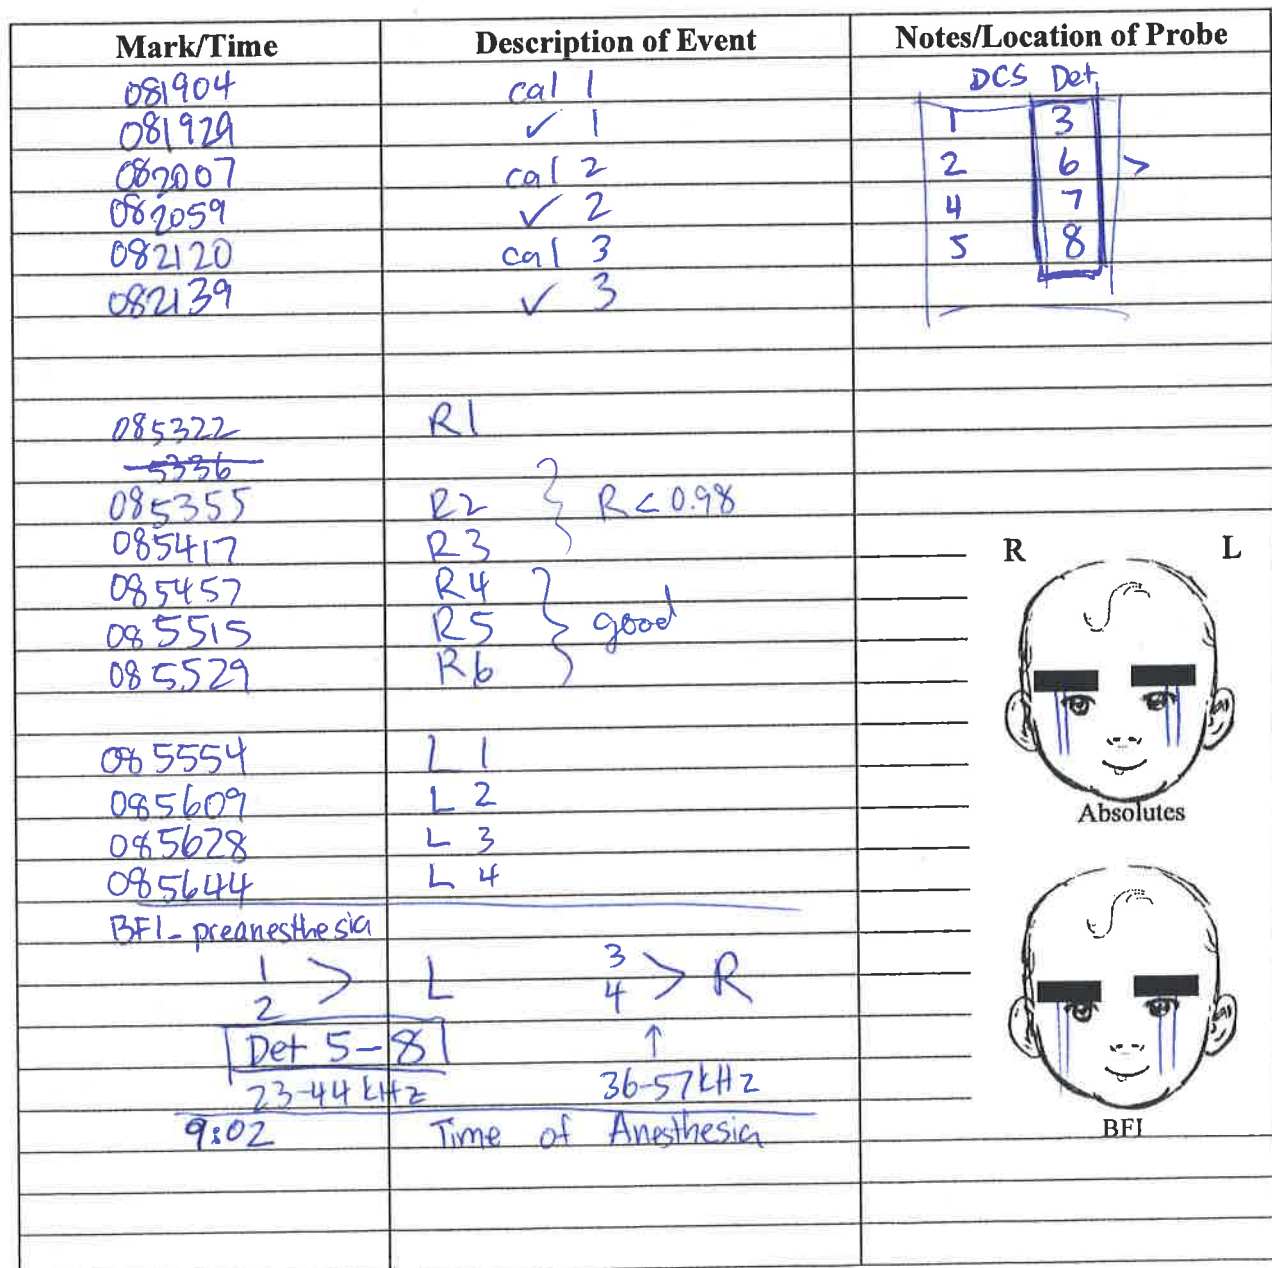 Mark/Time Description of Event Notes/Location of Probe
081904 cal 1 DCS Det
081929 ✓ 1 1 3
082007 cal 2 2 6 >
082059 ✓ 2 4 7
082120 cal 3 5 8
082139 ✓ 3
085322 R1
5336
085355 R2 } R < 0.98
085417 R3
R L
085457 R4
085515 R5 } good
085529 R6
085554 L 1
085609 L 2
Absolutes
085628 L 3
085644 L 4
BFI - preanesthesia
1 2 > L 3 4 > R
Det 5-8 ↑
23-44 kHz 36-57 kHz
9:02 Time of Anesthesia
BFI